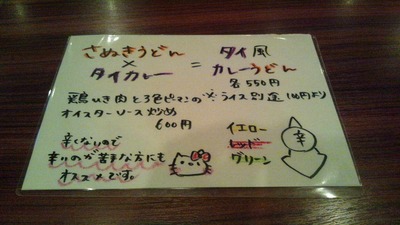 さぬきうどん × タイカレー = タイ風カレーうどん
各550円
鶏ひき肉と3色ピーマンの
オイスターソース炒め
600円
※ライス別途
辛くないので
辛いのが苦手な方にも
オススメです。
イエロー
レッド
グリーン
辛